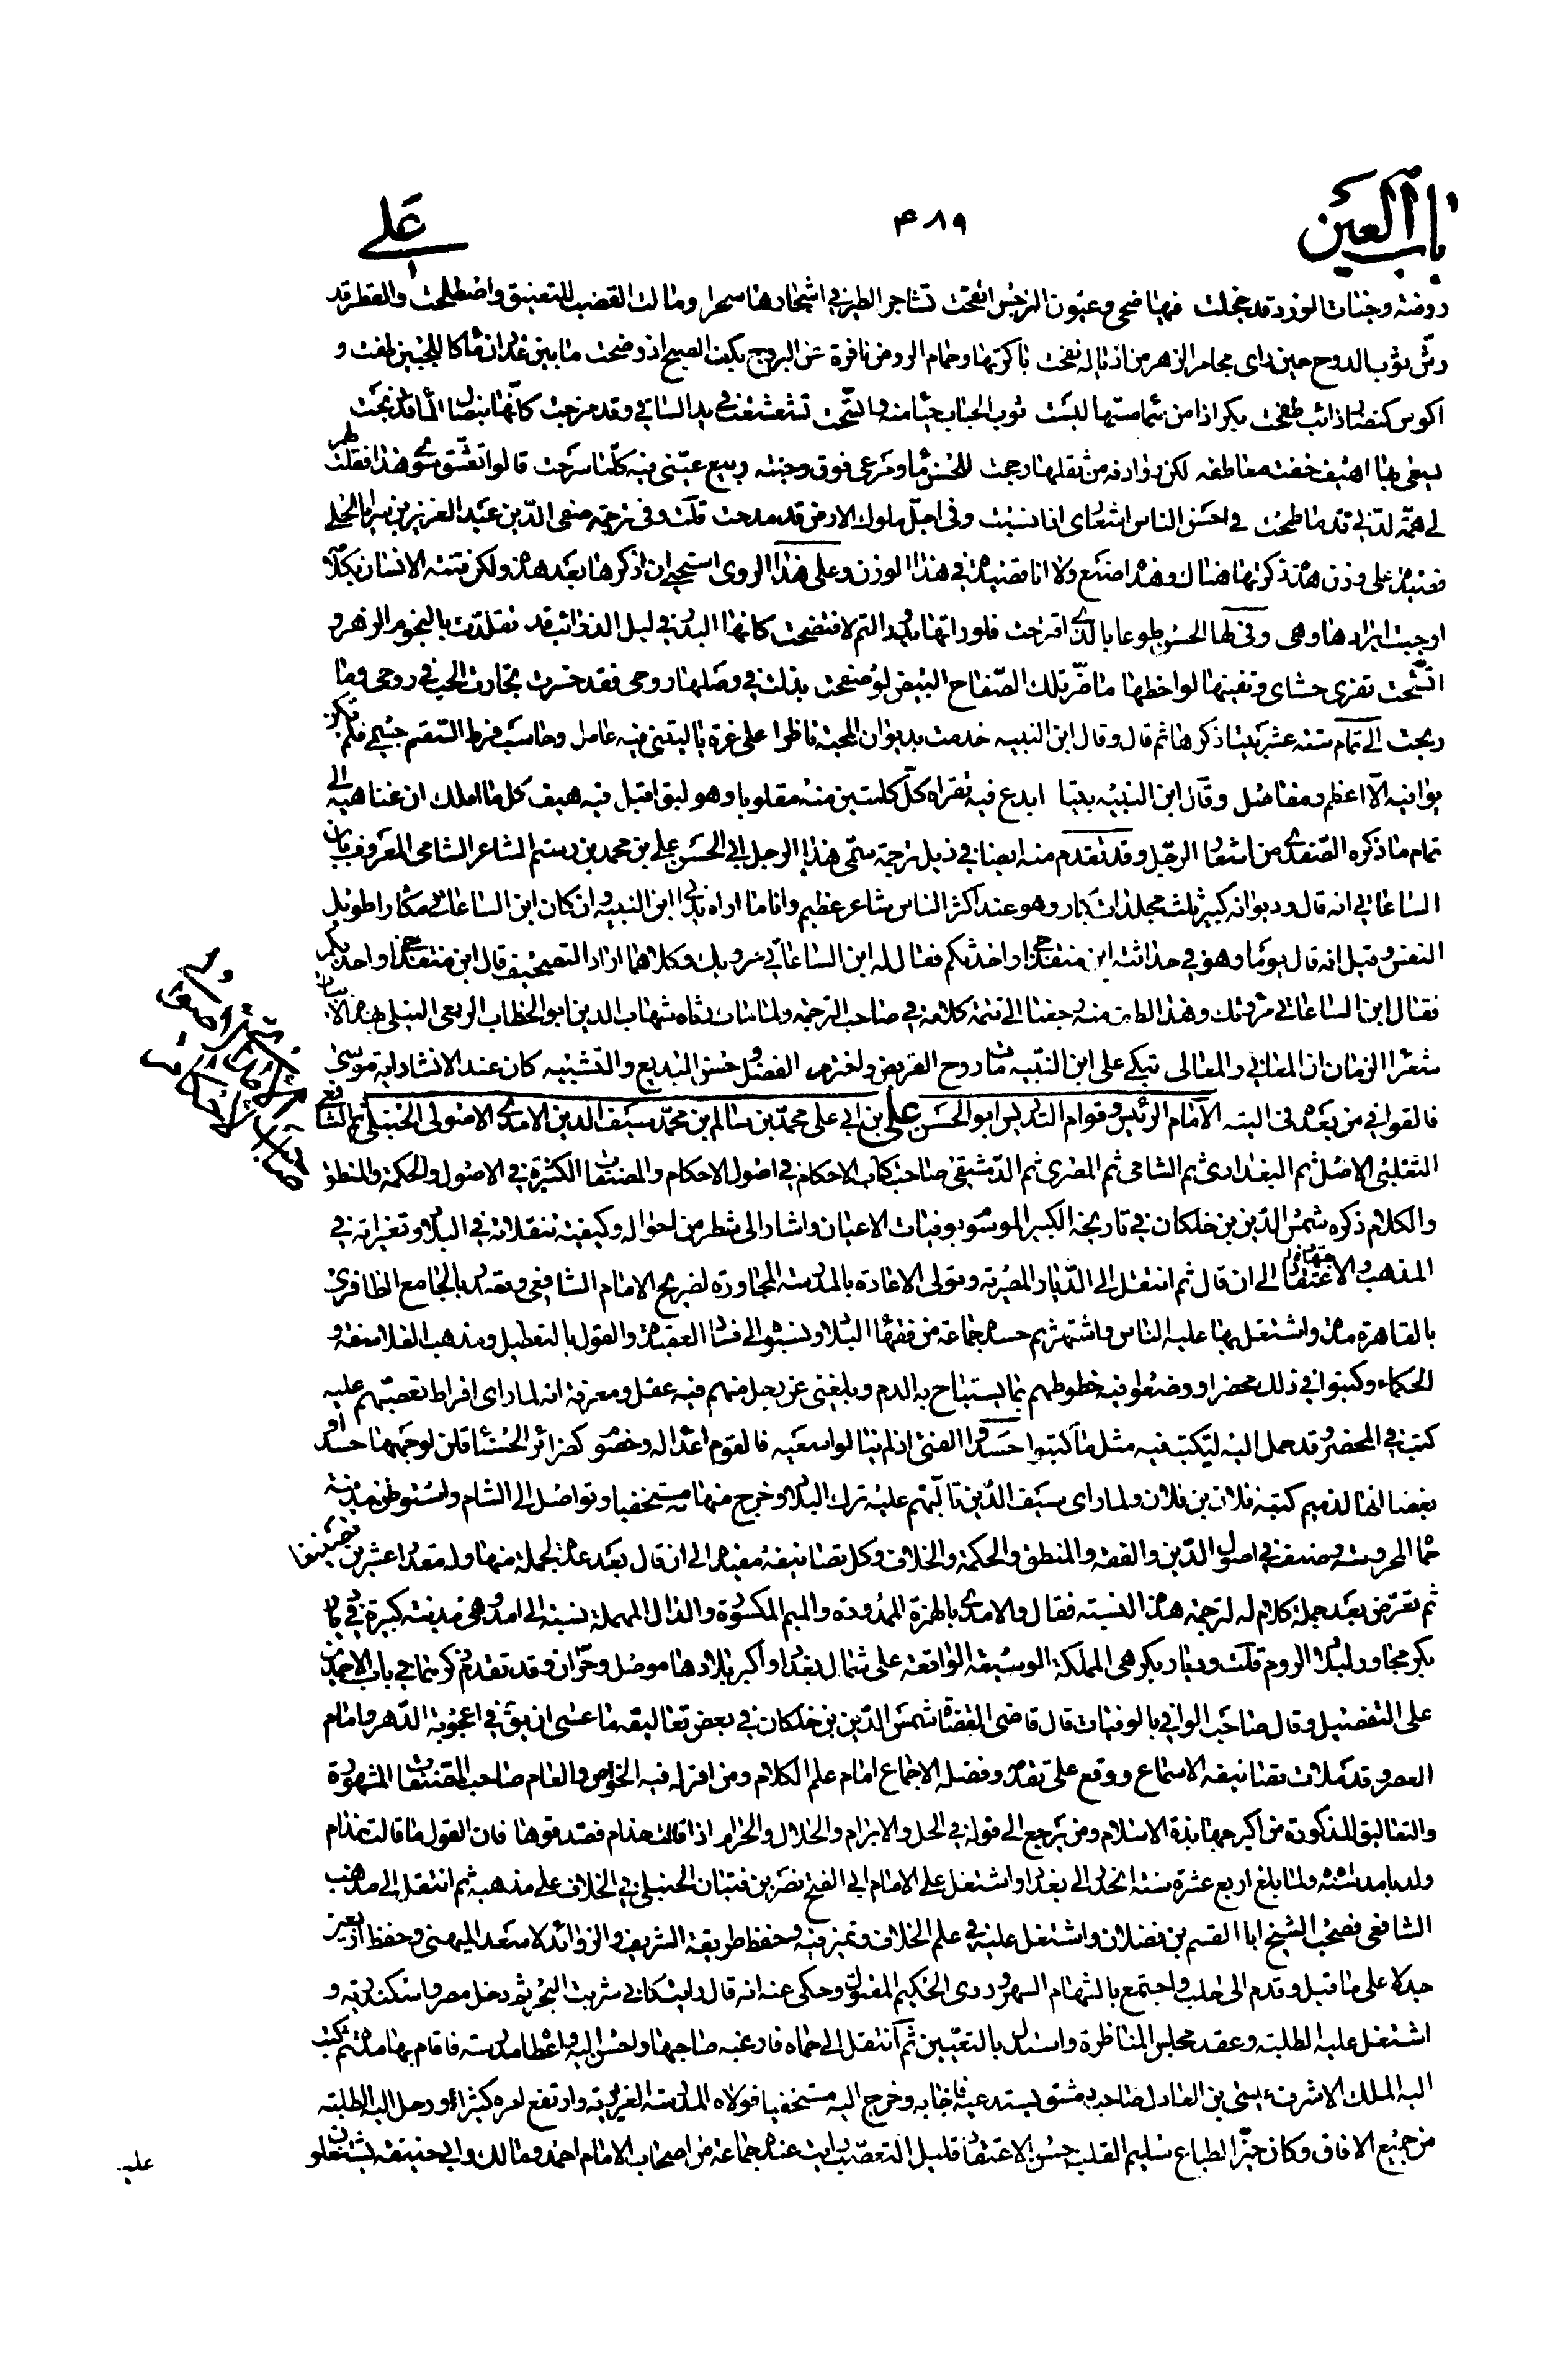 باب العين
۴۸۹
علي
روضة وجنات الورد قد خجلت فيها ضحى وعيون النرجس انفتحت تشاجر الطير في اشجارها سحرا ومالت القضب للتعنيق واصطلحت والقطر قد
رش ثوب الدوح حين راى مجامر الزهر من اذياله نفحت باكرتها وحمام الروض نافرة عن البروج بكف الصبح اذ وضحت ما بين غدران ماء كاللجين طفت و
اكوس كنضار ذائب طفحت بكر اذا من شماستها لبست ثوب الحباب حياء منه واتشحت تشعشعت في يد الساقي وقد مزجت كانها بنصال الماء قد ذبحت
يسعى بها اهيف خفت معاطفه لكن روادفه من ثقلها رجحت للحسن ماء ومرعى فوق وجنته ربيع عيني فيه كلما سرحت قالوا تعشق سوى هذا فقلت لهم
لي همة لدني قط ما طمحت في احسن الناس اشعاري اذا نسبت وفي اجل ملوك الارض قد مدحت قلت وفي ترجمة صفي الدين عبد العزيز بن سرايا الحلي
قصيدة على وزن هذه ذكرتها هناك وهذا اصنع ولا انا قصيدة في هذا الوزن وعلى هذا الروي استحيي ان اذكرها بعد هذه ولكن فتنة الانسان بكلامه
اوجبت ايرادها وهي وفي لها الحسن طوعا بالذي اقترحت فلو راتها بدور التم لافتضحت كانها البدر في ليل الذوائب قد تقلدت بالنجوم الزهر و
اتشحت تغزي حشاي وتفنيها لواحظها ما ضر تلك الصفاح البيض لو صفحت بذلت في وصلها روحي فقد خسرت تجارت الحب في روحي وما
ربحت الى تمام ستة عشر بيتا ذكرها ثم قال وقال ابن النبيه خدمت بديوان المحبة ناظرا على غرة يا ليتني فيه عامل وحاسبت فرط السقم جسمي فلم يكن
يوافيه الا اعظم ومفاصل وقال ابن النبيه بيتا ابدع فيه تقراه كل كلمتين منه مقلوبا وهو لبق اقبل فيه هيف كل ما املك ان غنا هبه الى
تمام ما ذكره الصفدي من اشعار الرجل وقد تقدم منه ايضا في ذيل ترجمة سمي هذا الرجل ابي الحسن علي بن محمد بن رستم الشاعر الشامي المعروف بابن
الساعاتي انه قال وديوانه كبير ثلث مجلدات كبار وهو عند اكثر الناس شاعر عظيم وانا ما اراه يداني ابن النبيه وان كان ابن الساعاتي مكثارا طويل
النفس وقيل انه قال يوما وهو في حداثته ابن منقذ او احدثكم فقال له ابن الساعاتي مرويك وكلاهما اراد التصحيف قال ابن منقذ او احد بكر
فقال ابن الساعاتي مزقتك وهذا الطف منه رجعنا الى تتمة كلامه في صاحب الترجمة ولما مات رثاه شهاب الدين ابو الخطاب الربعي النيلي بهذه الابيات
شعرا الزمان ان المعاني والمعالي تبكي على ابن النبيه مات روح القريض واخترم الفضل وحسن البديع والتشبيه كان عند الانشاد اية موسى
فالقوافي من بعده في التيه الامام الرئيس وقوام التدريس ابو الحسن علي بن ابي علي محمد بن سالم بن محمد سيف الدين الامدي الاصولي الحنبلي ثم الشافعي
الثعلبي الاصل ثم البغدادي ثم الشامي ثم المصري ثم الدمشقي صاحب كتاب الاحكام في اصول الاحكام والمصنفات الكثيرة في الاصول والحكمة والمنطق
والكلام ذكره شمس الدين بن خلكان في تاريخه الكبير الموسوم بوفيات الاعيان واشار الى شطر من احواله وكيفية تنقلاته في البلاد وتغيراته في
المذهب والاعتقاد الى ان قال ثم انتقل الى الديار المصرية وتولى الاعادة بالمدرسة المجاورة لضريح الامام الشافعي وتصدر بالجامع الظافري
بالقاهرة مدة واشتغل بها عليه الناس واشتهر ثم حسده جماعة من فقهاء البلاد ونسبوه الى فساد العقيدة والقول بالتعطيل ومذهب الفلاسفة و
الحكماء وكتبوا في ذلك محضرا ووضعوا فيه خطوطهم بما يستباح به الدم وبلغني عن رجل منهم فيه عقل ومعرفة انه لما راى افراط تعصبهم عليه
كتب في المحضر وقد حمل اليه ليكتب فيه مثل ما كتبوا حسدوا الفتى اذ لم ينالوا سعيه فالقوم اعداء له وخصوم كضرائر الحسناء قلن لوجهها حسدا و
بغضا انها لدميم كتبه فلان بن فلان ولما راى سيف الدين تالبهم عليه ترك البلاد وخرج منها مستخفيا وتواصل الى الشام واستوطن مدينة
حماة المحروسة وصنف في اصول الدين والفقه والمنطق والحكمة والخلاف وكل تصانيفه مفيدة الى ان قال بعد عده لجملة منها وله مقدار عشرين تصنيفا
ثم تعرض بعد جملة كلام له لترجمة هذه النسبة فقال والامدي بالهمزة الممدودة والميم المكسورة والدال المهملة نسبة الى امد وهي مدينة كبيرة في ديار
بكر مجاور لبلاد الروم قلت وديار بكر هي المملكة الوسيعة الواقعة على شمال بغداد واكبر بلادها موصل وحران وقد تقدم ذكرهما في باب الاحمدين
على التفصيل وقال صاحب الوافي بالوفيات قال قاضي القضاة شمس الدين بن خلكان في بعض تعاليقه ما عسى ان يق في اعجوبة الدهر وامام
العصر وقد ملات تصانيفه الاسماع ووقع على تقدمه وفضله الاجماع امام علم الكلام ومن اقر له فيه الخواص والعام صاحب المصنفات المشهورة
والتعاليق المذكورة من اكبر جهابذة الاسلام ومن يرجع الى قوله في الحل والابرام والحلال والحرام اذا قالت حذام فصدقوها فان القول ما قالت حذام
ولد بامد سنة ولما بلغ اربع عشرة سنة انحدر الى بغداد واشتغل على الامام ابي الفتح نصر بن فتيان الحنبلي في الخلاف على مذهبه ثم انتقل الى مذهب
الشافعي فصحب الشيخ ابا القسم بن فضلان واشتغل عليه في علم الخلاف وتميز فيه وحفظ طريقة الشريف والزوائد لاسعد الميهني وحفظ اربعين
جدلا على ما قيل وقدم الى حلب واجتمع بالشهاب السهروردي الحكيم المقتول وحكى عنه انه قال رايت كاني شربت البحر ثم دخل مصر واسكندرية و
اشتغل عليه الطلبة وعقد مجلس المناظرة واستدل بالتعيين ثم انتقل الى حماه فارغبه صاحبها واحسن اليه واعطاه مدرسة فاقام بها مدة ثم كتب
اليه الملك الاشرف عيسى بن العادل صاحب دمشق يستدعيه فاجابه وخرج اليه مستخفيا فولاه المدرسة العزيزية وارتفع امره كثيرا ورحل اليه الطلبة
من جميع الافاق وكان خير الطباع سليم القلب حسن الاعتقاد قليل التعصب رايت عنده جماعة من اصحاب الامام احمد ومالك وابي حنيفة يشتغلون
عليه